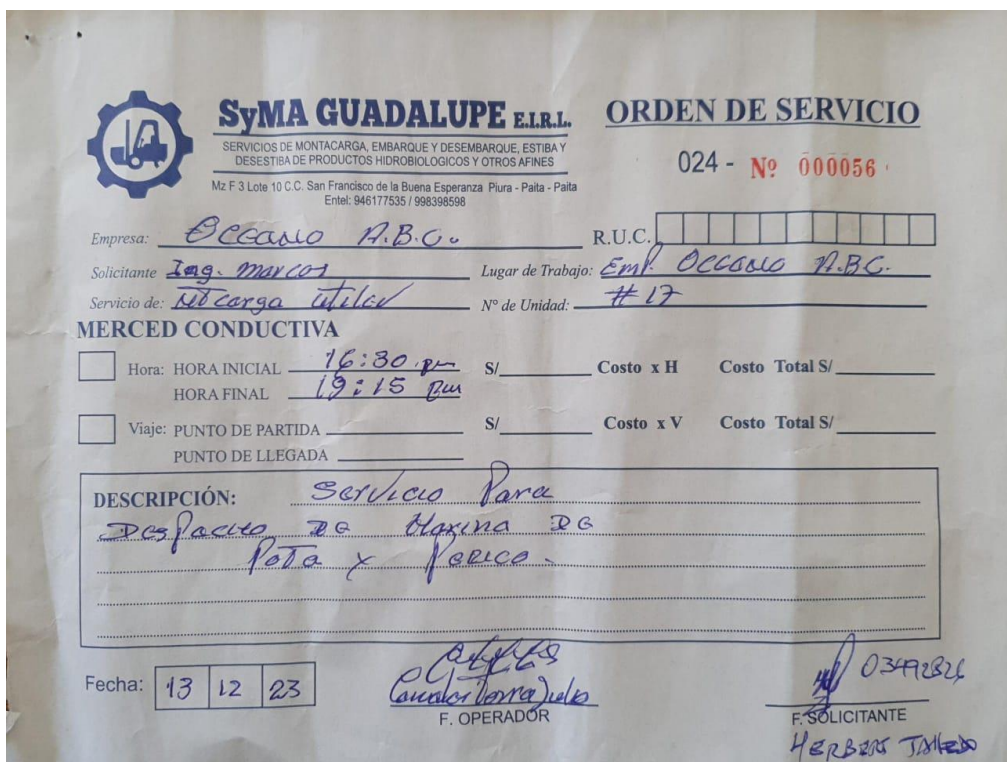 SyMA GUADALUPE E.I.R.L.
SERVICIOS DE MONTACARGA, EMBARQUE Y DESEMBARQUE, ESTIBA Y
DESESTIBA DE PRODUCTOS HIDROBIOLOGICOS Y OTROS AFINES
Mz F 3 Lote 10 C.C. San Francisco de la Buena Esperanza Piura - Paita - Paita
Entel: 946177535 / 998398598
ORDEN DE SERVICIO
024 - Nº 000056
Empresa: Occano A.B.C. R.U.C.
Solicitante Ing. Marcos Lugar de Trabajo: Emp. Occano A.B.C.
Servicio de: Nº de Unidad: #17
MERCED CONDUCTIVA
Hora: HORA INICIAL 16:30 pm S/ Costo x H Costo Total S/
HORA FINAL 19:15 pm
Viaje: PUNTO DE PARTIDA S/ Costo x V Costo Total S/
PUNTO DE LLEGADA
DESCRIPCIÓN: Servicio Para
Despacho DE Harina DE
Pota y Perico.
Fecha: 13 12 23
F. OPERADOR
F. SOLICITANTE
HERBERT